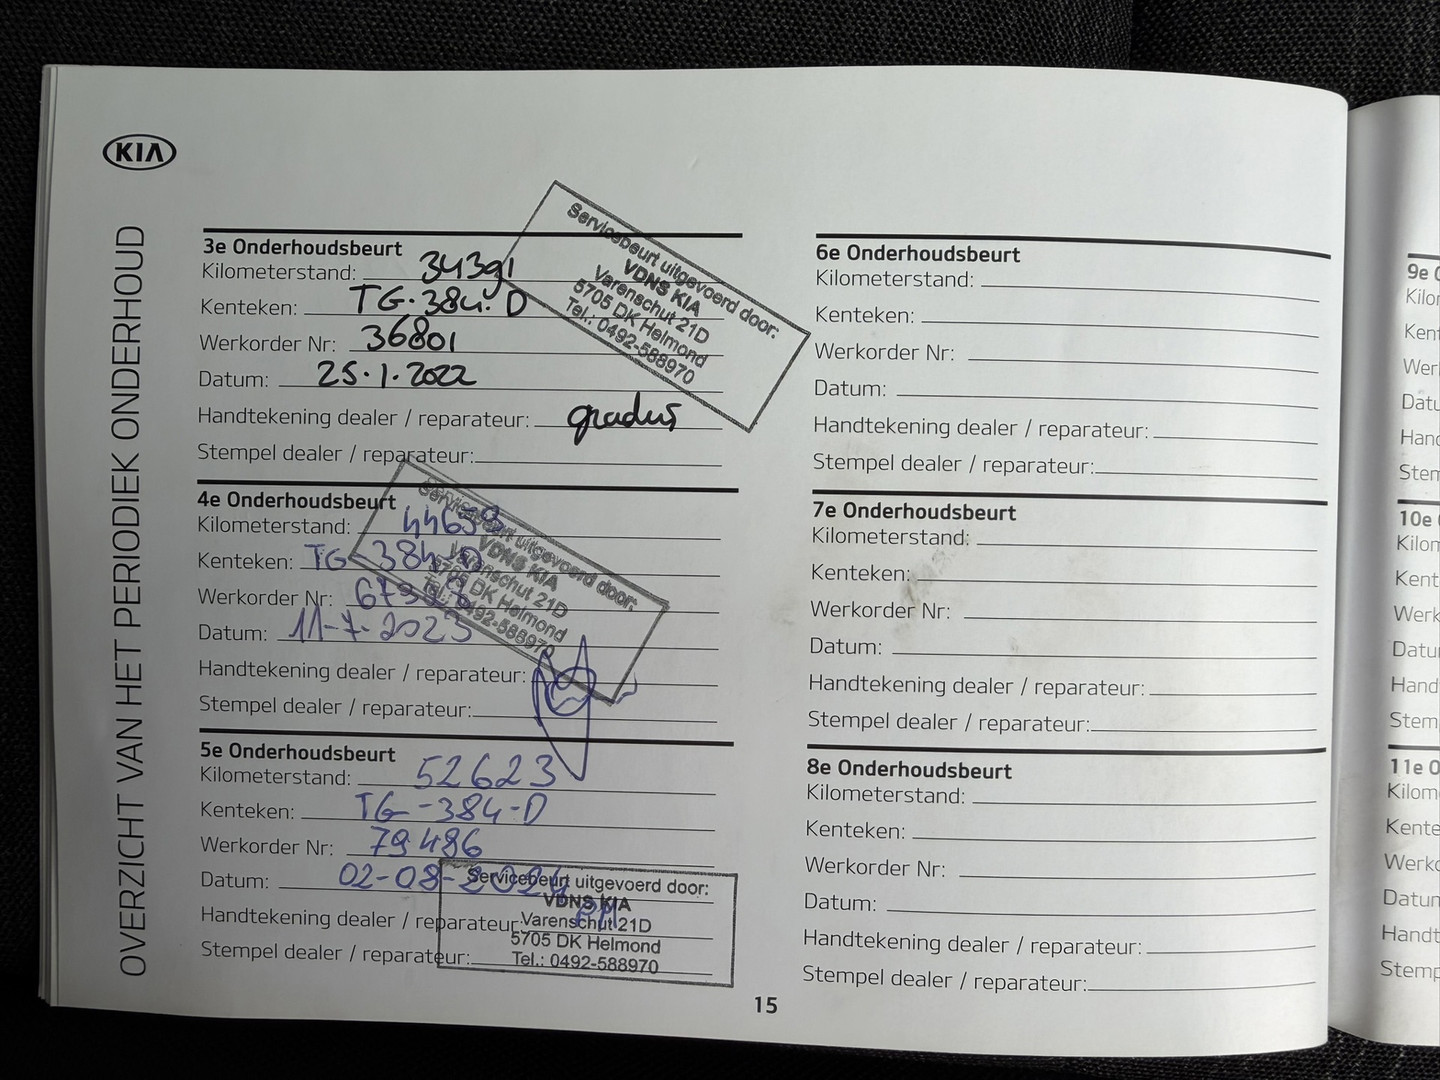 KIA
OVERZICHT VAN HET PERIODIEK ONDERHOUD
3e Onderhoudsbeurt
Kilometerstand: 34391
Kenteken: TG-384-D
Werkorder Nr: 36801
Datum: 25-1-2022
Handtekening dealer / reparateur: gradus
Stempel dealer / reparateur:
Servicebeurt uitgevoerd door:
VDNS KIA
Varenschut 21D
5705 DK Helmond
Tel.: 0492-588970
4e Onderhoudsbeurt
Kilometerstand:
Kenteken: TG-384-D
Werkorder Nr:
Datum: 11-7-2023
Handtekening dealer / reparateur:
Stempel dealer / reparateur:
Servicebeurt uitgevoerd door:
VDNS KIA
Varenschut 21D
5705 DK Helmond
Tel.: 0492-588970
5e Onderhoudsbeurt
Kilometerstand: 52623
Kenteken: TG-384-D
Werkorder Nr: 79486
Datum: 02-08-2024
Handtekening dealer / reparateur:
Stempel dealer / reparateur:
Servicebeurt uitgevoerd door:
VDNS KIA
Varenschut 21D
5705 DK Helmond
Tel.: 0492-588970
6e Onderhoudsbeurt
Kilometerstand:
Kenteken:
Werkorder Nr:
Datum:
Handtekening dealer / reparateur:
Stempel dealer / reparateur:
7e Onderhoudsbeurt
Kilometerstand:
Kenteken:
Werkorder Nr:
Datum:
Handtekening dealer / reparateur:
Stempel dealer / reparateur:
8e Onderhoudsbeurt
Kilometerstand:
Kenteken:
Werkorder Nr:
Datum:
Handtekening dealer / reparateur:
Stempel dealer / reparateur:
15
9e
10e
11e